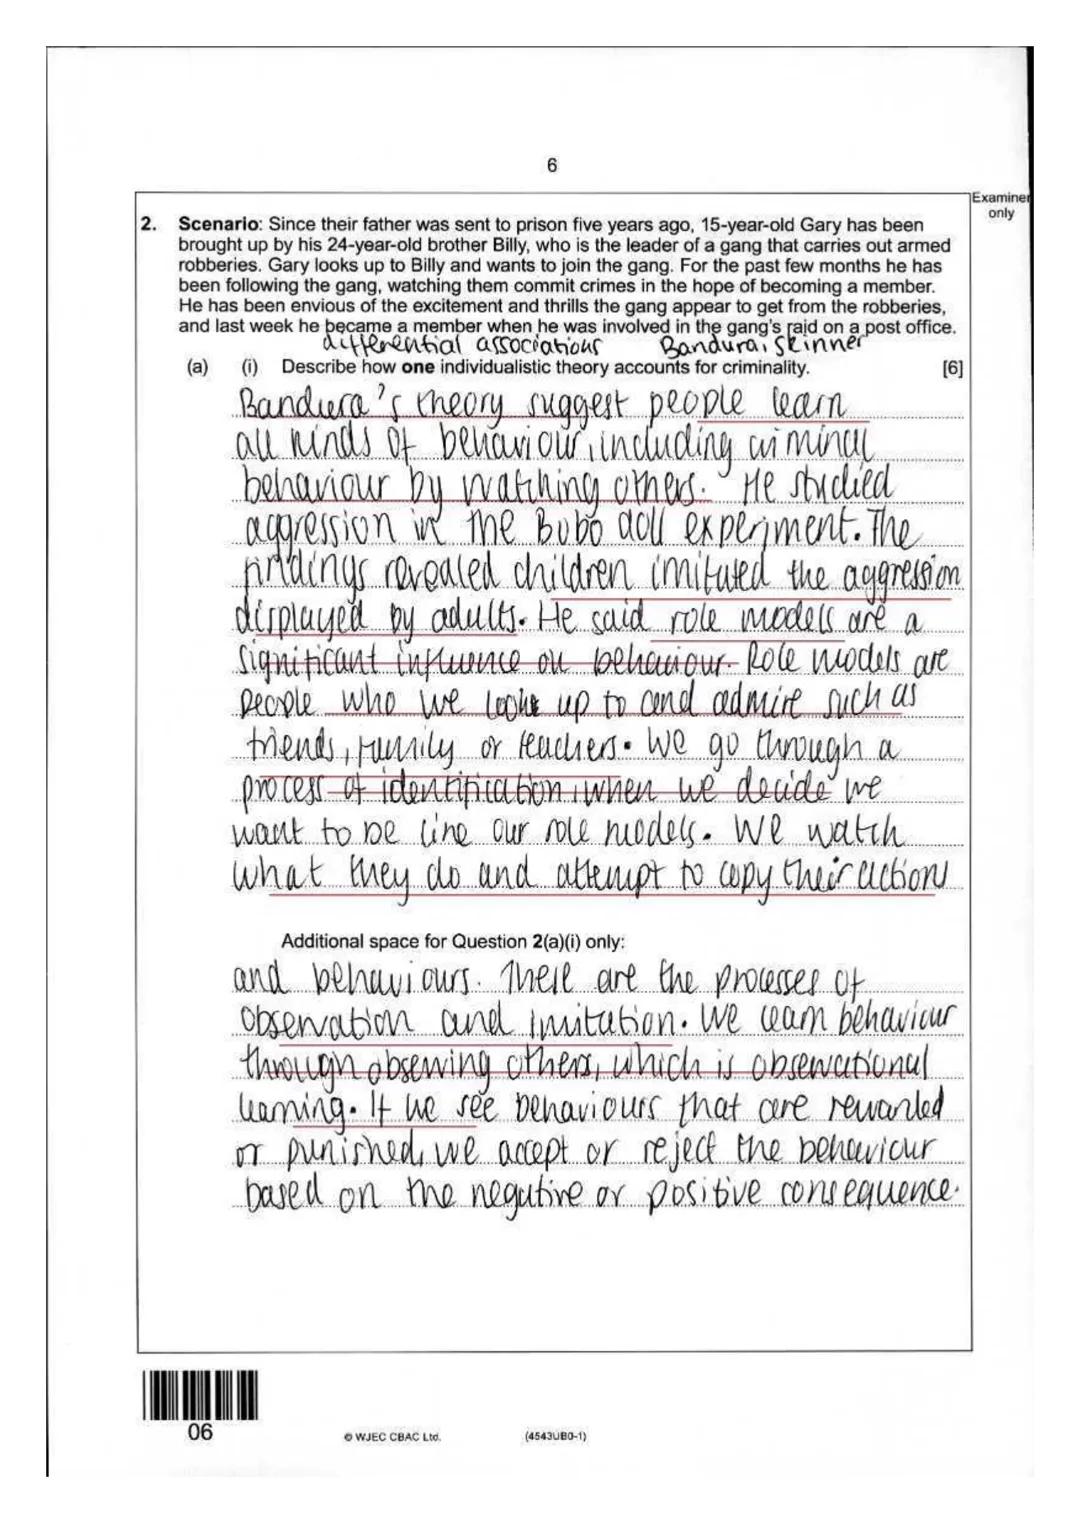 6
Examiner
only
2. Scenario: Since their father was sent to prison five years ago, 15-year-old Gary has been
brought up by his 24-year-old brother Billy, who is the leader of a gang that carries out armed
robberies. Gary looks up to Billy and wants to join the gang. For the past few months he has
been following the gang, watching them commit crimes in the hope of becoming a member.
He has been envious of the excitement and thrills the gang appear to get from the robberies,
and last week he became a member when he was involved in the gang's raid on a post office.
differential associations Bandura, Skinner
(a) (i) Describe how one individualistic theory accounts for criminality. [6]
Bandura's theory suggest people learn
all kinds of behaviour, including criminal
behaviour by watching others. He studied
aggression in the Bobo doll experiment. The
findings revealed children imitated the aggression
displayed by adults. He said role models are a
significant influence on behaviour. Role models are
people who we look up to and admire such as
friends, family or teachers. We go through a
process of identification, when we decide we
want to be like our role models. We watch
what they do and attempt to copy their actions
Additional space for Question 2(a)(i) only:
and behaviours. These are the processes of
observation and imitation. We learn behaviour
through observing others, which is observational
learning. If we see behaviours that are rewarded
or punished, we accept or reject the behaviour
based on the negative or positive consequence.
06
© WJEC CBAC Ltd. (4543UB0-1)